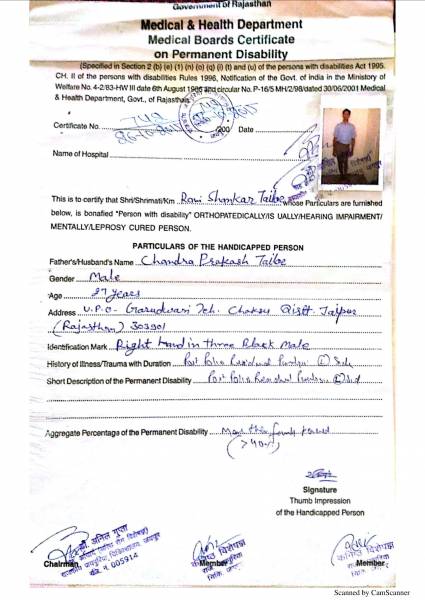 Government of Rajasthan
Medical & Health Department
Medical Boards Certificate
on Permanent Disability
(Specified in Section 2 (b) (e) (1) (n) (o) (q) (i) (t) and (u) of the persons with disabilities Act 1995.
CH. II of the persons with disabilities Rules 1996, Notification of the Govt. of India in the Ministory of
Welfare No. 4-2/83-HW III date 6th August 1986 and circular No. P-16/5 MH/2/98/dated 30/06/2001 Medical
& Health Department, Govt., of Rajasthan
Certificate No. 749 /200 Date
Name of Hospital
This is to certify that Shri/Shrimati/Km Ravi Shankar whose Particulars are furnished
below, is bonafied "Person with disability" ORTHOPATEDICALLY/IS UALLY/HEARING IMPAIRMENT/
MENTALLY/LEPROSY CURED PERSON.
PARTICULARS OF THE HANDICAPPED PERSON
Father's/Husband's Name Chandra Prakash
Gender Male
Age 27 years
Address V.P.O- Garudwasi Teh. Chaksu Distt. Jaipur
(Rajasthan) 303901
Identification Mark Right hand in three Black Male
History of Illness/Trauma with Duration Post Polio Residual
Short Description of the Permanent Disability Post Polio Residual
Aggregate Percentage of the Permanent Disability More than
(>40%)
Signature
Thumb Impression
of the Handicapped Person
अनिल गुप्ता
Chairman
र. नं. 005914
कनिष्ठ विशेषज्ञ
Member
कनिष्ठ विशेषज्ञ
Member
Scanned by CamScanner